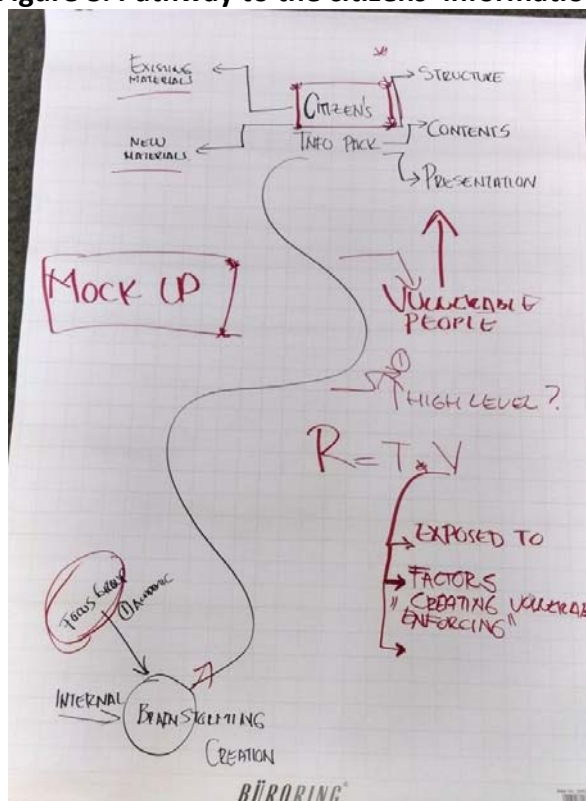 EXISTING
MATERIALS
NEW
MATERIALS
CITIZEN'S
INFO PACK
STRUCTURE
CONTENTS
PRESENTATION
MOCK UP
VULNERABLE
PEOPLE
①
HIGH LEVEL?
R=T*V
EXPOSED TO
FACTORS
"CREATING
ENFORCING"
FOCUS GROUP
①
INTERNAL
BRAINSTORMING
CREATION
BÜRORING